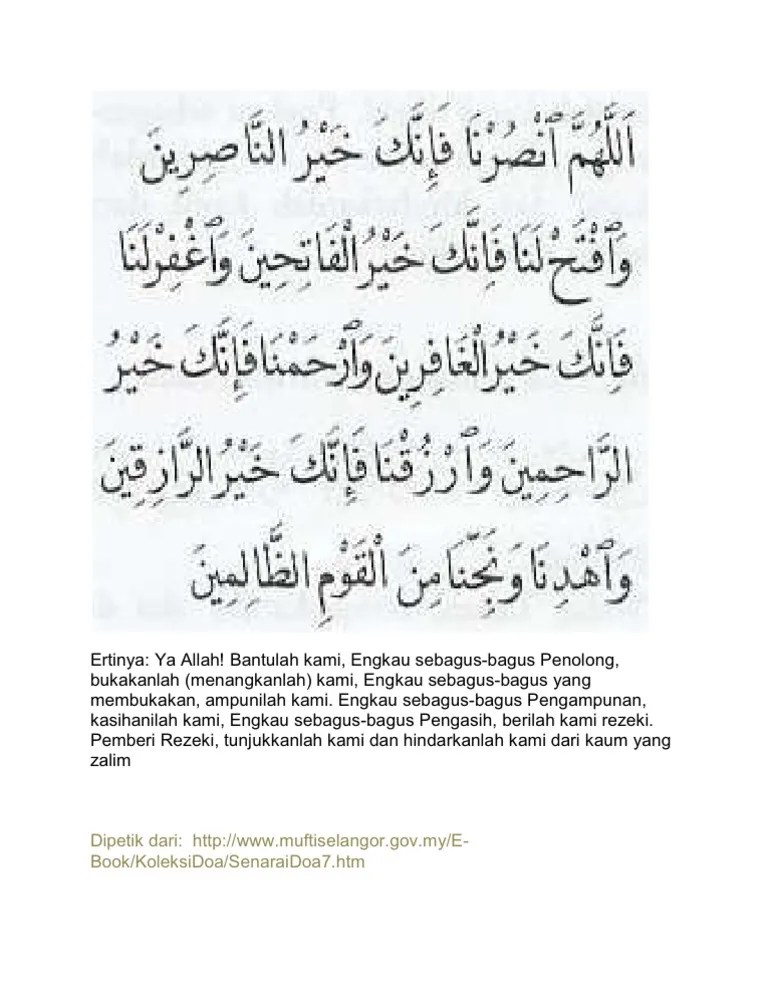 اَللَّهُمَّ ٱنْصُرْنَا فَإِنَّكَ خَيْرُ النَّاصِرِينَ
وَٱفْتَحْ لَنَا فَإِنَّكَ خَيْرُ الْفَاتِحِينَ وَٱغْفِرْلَنَا
فَإِنَّكَ خَيْرُ الْغَافِرِينَ وَٱرْحَمْنَا فَإِنَّكَ خَيْرُ
الرَّاحِمِينَ وَٱرْزُقْنَا فَإِنَّكَ خَيْرُ الرَّازِقِينَ
وَٱهْدِنَا وَنَجِّنَا مِنَ الْقَوْمِ الظَّالِمِينَ
Ertinya: Ya Allah! Bantulah kami, Engkau sebagus-bagus Penolong,
bukakanlah (menangkanlah) kami, Engkau sebagus-bagus yang
membukakan, ampunilah kami. Engkau sebagus-bagus Pengampunan,
kasihanilah kami, Engkau sebagus-bagus Pengasih, berilah kami rezeki.
Pemberi Rezeki, tunjukkanlah kami dan hindarkanlah kami dari kaum yang
zalim
Dipetik dari:  http://www.muftiselangor.gov.my/E-
Book/KoleksiDoa/SenaraiDoa7.htm